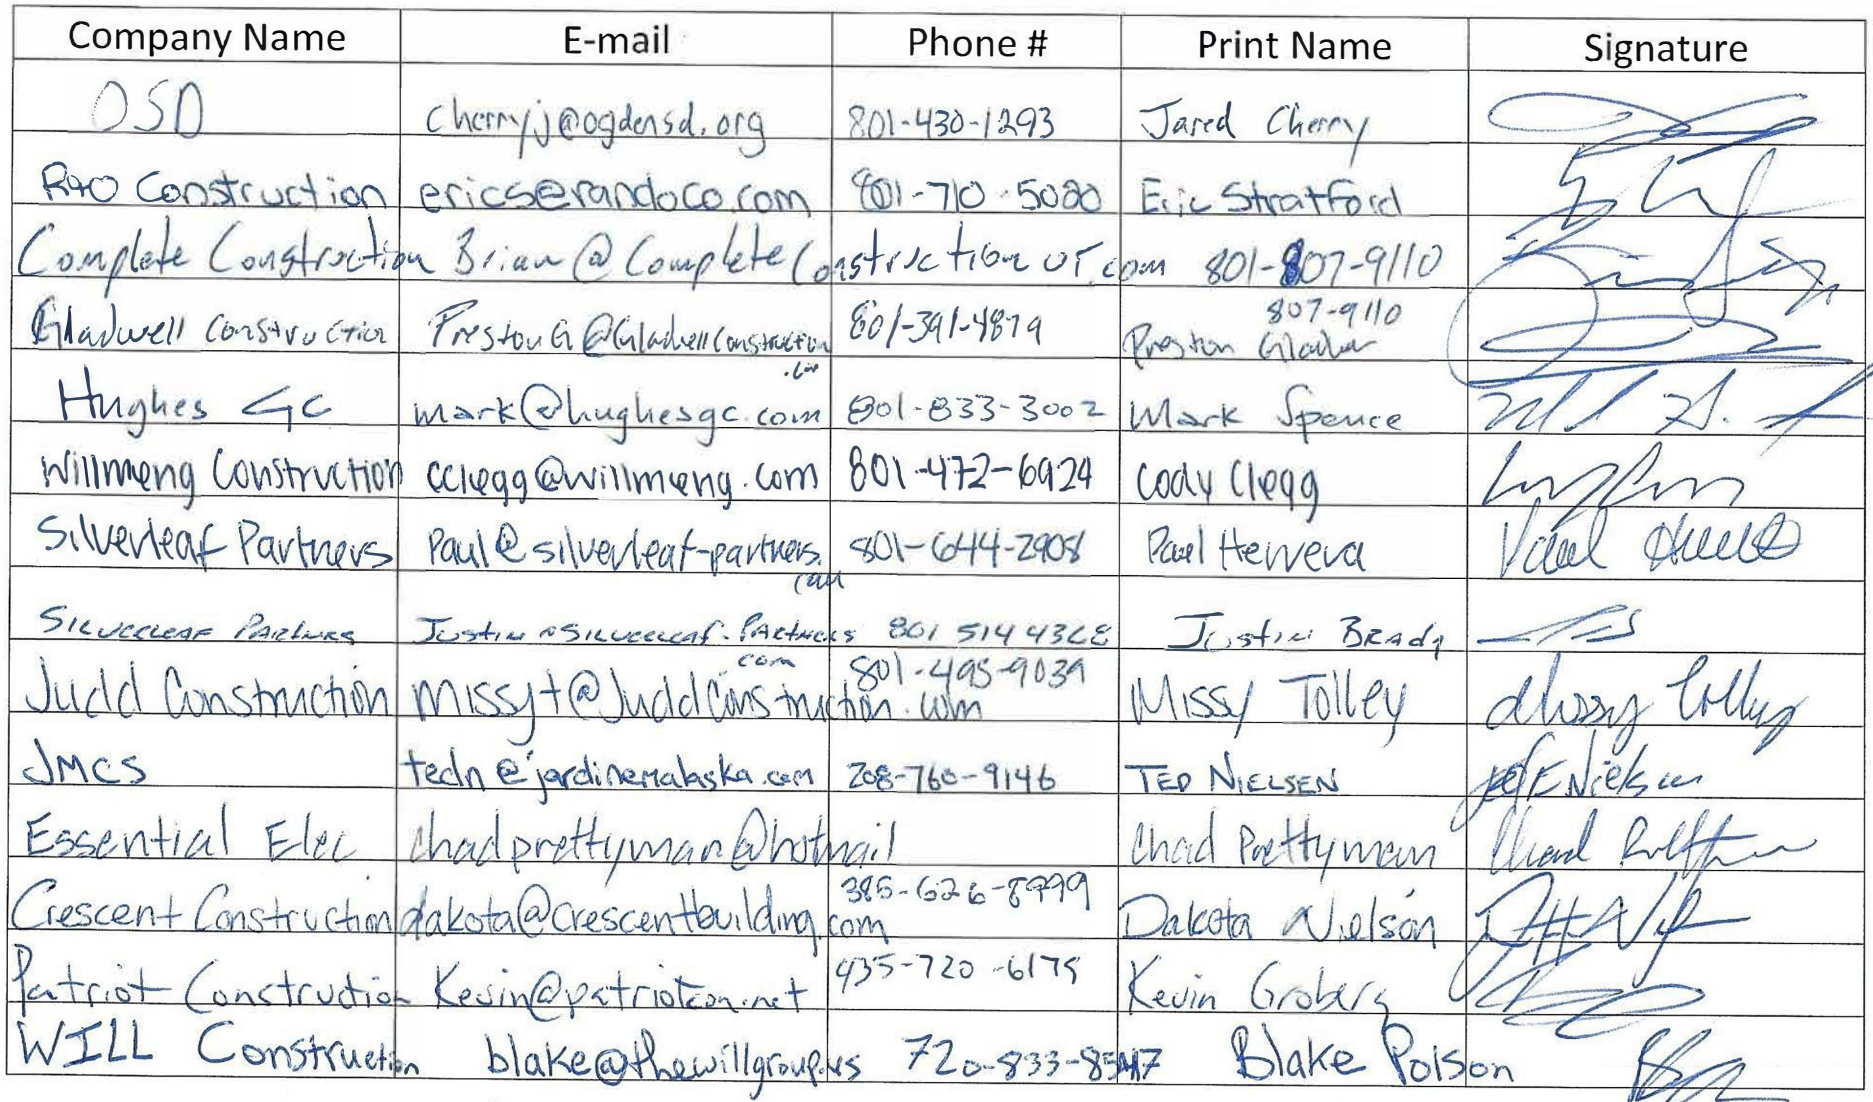 Company Name E-mail Phone # Print Name Signature
OSD cherryj@ogdensd.org 801-430-1293 Jared Cherry
R&O Construction erics@randoco.com 801-710-5080 Eric Stratford
Complete Construction Brian@CompleteConstructionUT.com 801-807-9110
807-9110
Gladwell Construction PrestonG@GladwellConstruction 801-391-4879 Preston
.com
Hughes GC mark@hughesgc.com 801-833-3002 Mark Spence
Willmeng Construction cclegg@willmeng.com 801-472-6924 Cody Clegg
Silverleaf Partners Paul@silverleaf-partners. 801-644-2908 Paul Herrera
com
Silverleaf Partners Justin@Silverleaf-Partners 801 514 4368 Justin Brady
com
Judd Construction missyt@JuddConstruction.com 801-495-9039 Missy Tolley Missy Tolley
JMCS tedn@jardinemalaska.com 208-760-9146 TED NIELSEN
Essential Elec chadprettyman@hotmail Chad Prettyman
Crescent Construction dakota@crescentbuilding.com 385-626-8999 Dakota Nielson
Patriot Construction Kevin@patriotcon.net 435-720-6175 Kevin Groberg
WILL Construction blake@thewillgroup.us 720-833-8547 Blake Polson